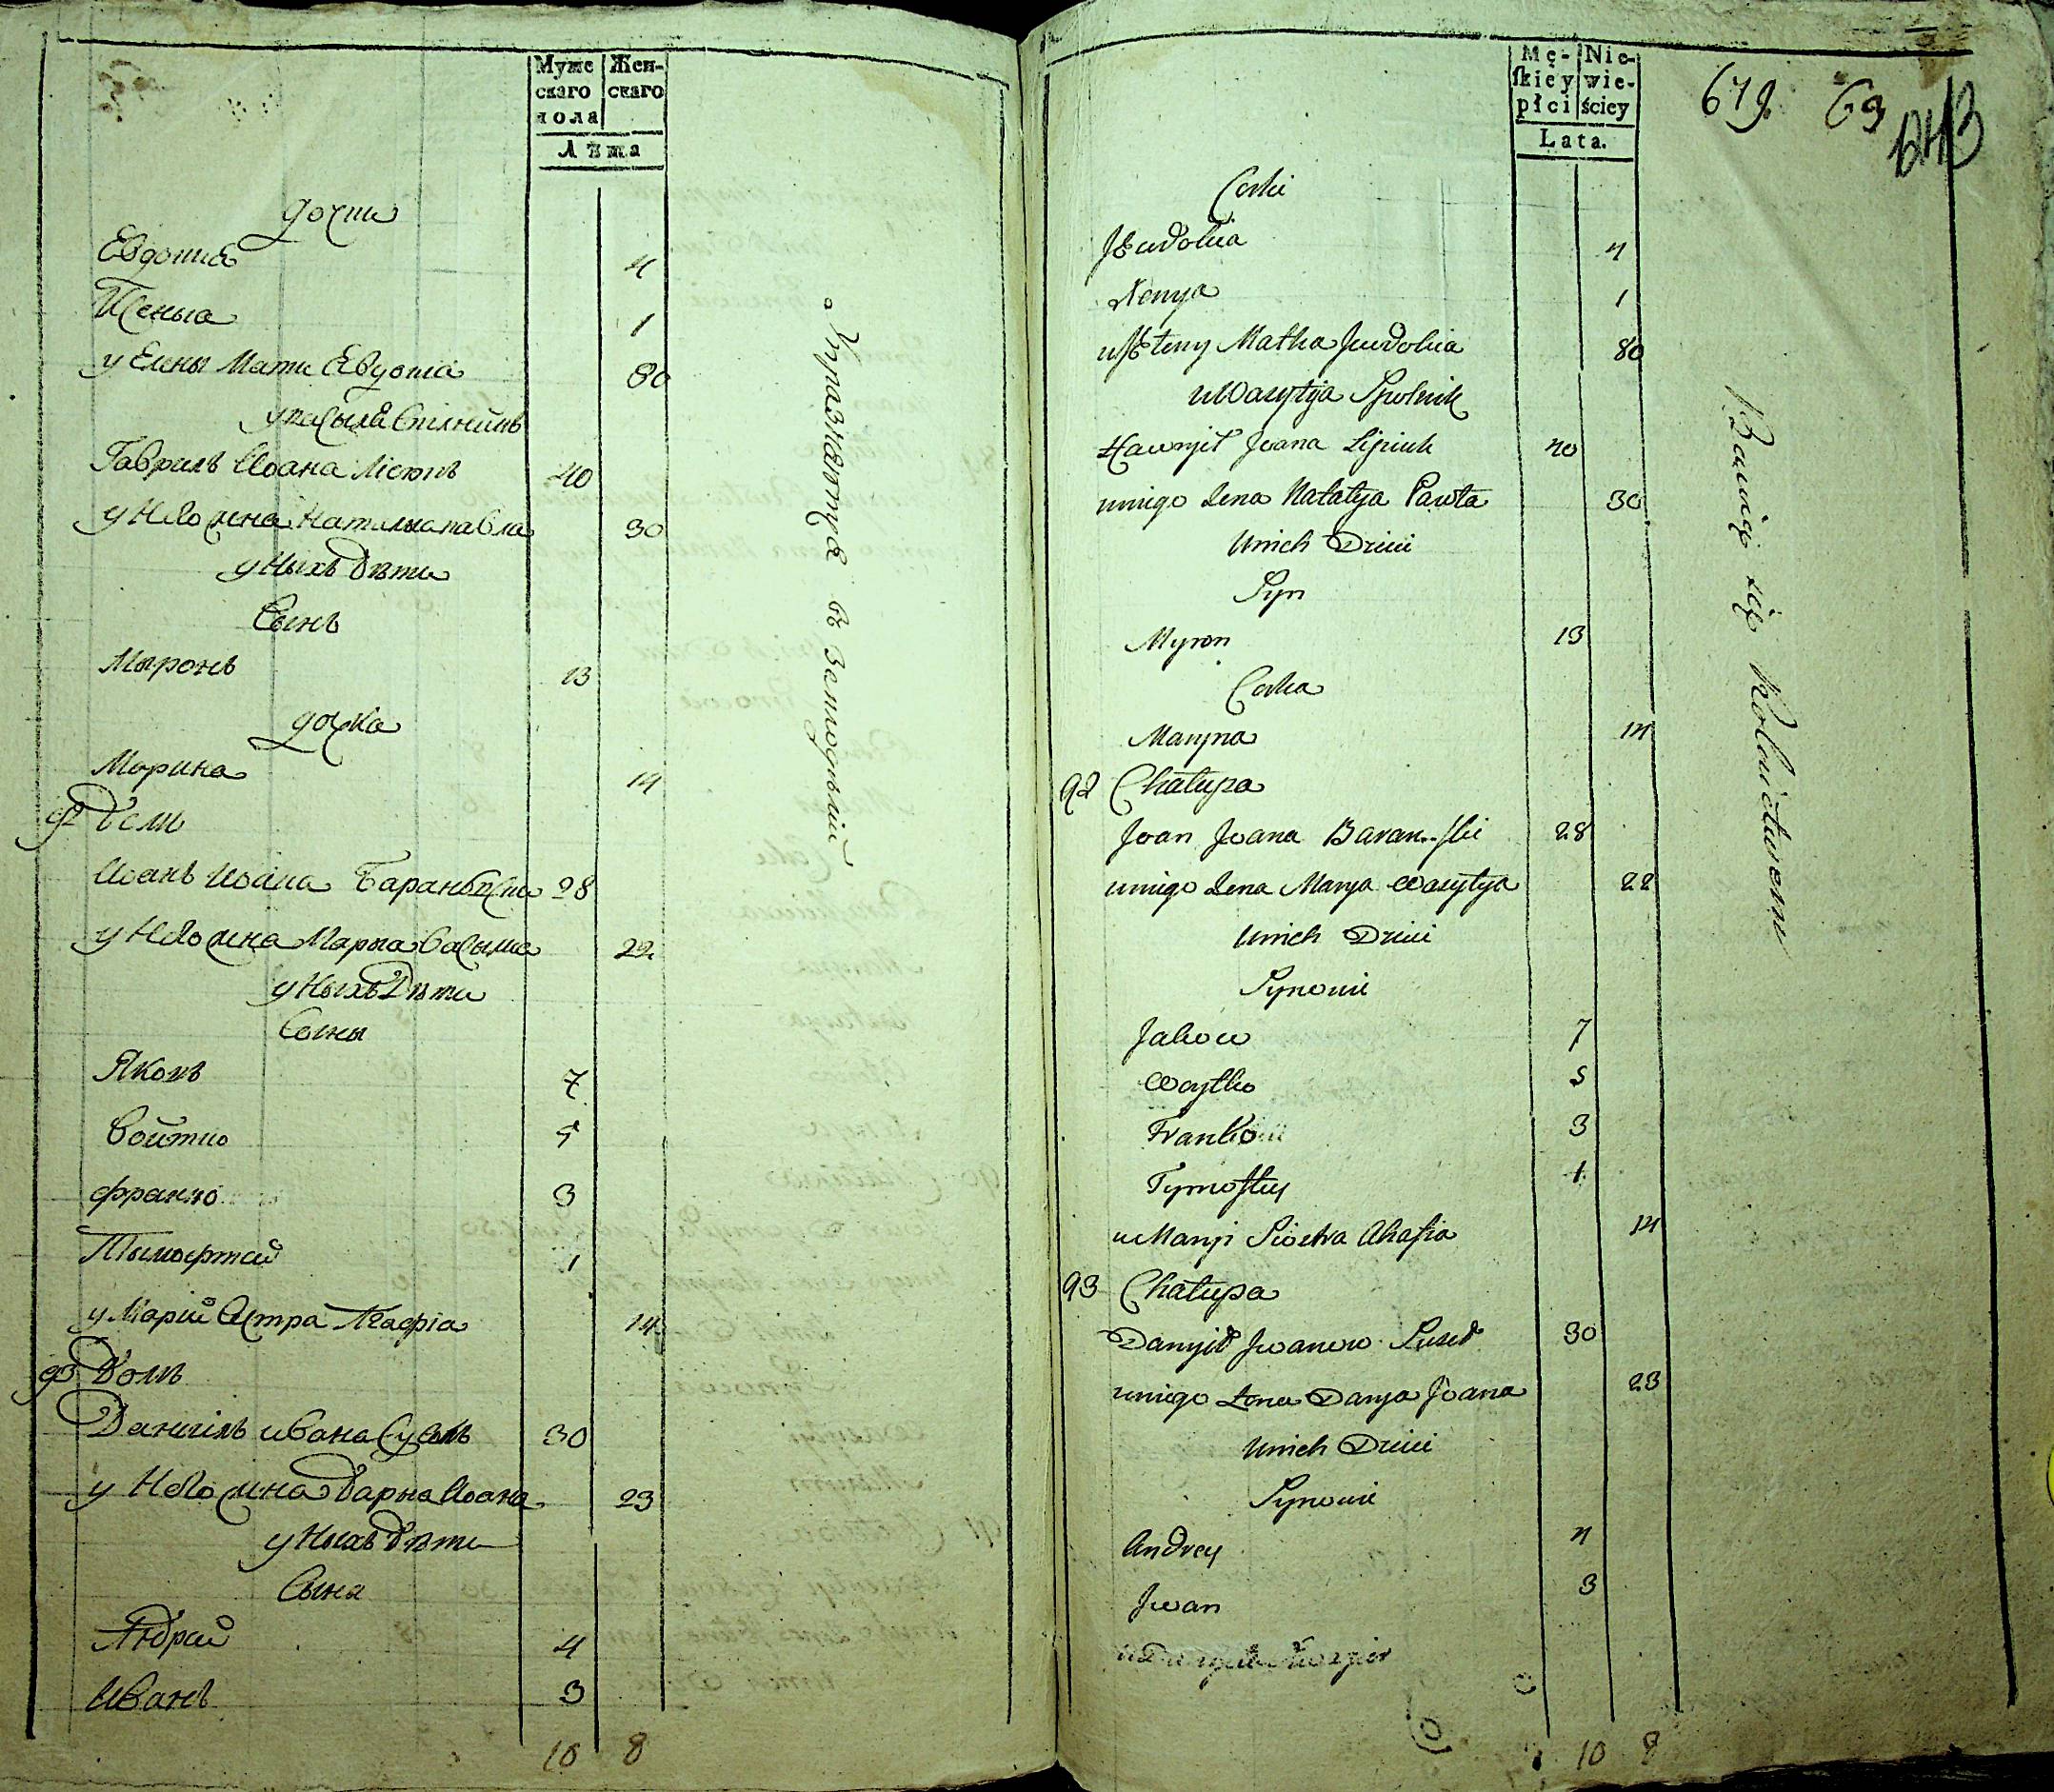 Муже Жен-
скаго скаго
пола
Лѣта
дочки
Евдокиѧ 4
Ксеныа 1
у Елены Мати Евдокіа 80
у васыла Спілникъ
Гаврилъ Иоана Лісюкъ 40
у Него жена Наталыа павла 30
у Ныхъ Дѣти
Сынъ
Мыронъ 13
дочка
Марина 14
92 Домъ
Иоанъ Иоана Бараньски 28
у Него жена Марыа васыла 22
у Ныхъ Дѣти
Сыны
Яковъ 7
Войтко 5
франко 3
Тымофтей 1
у Марии Сестра Агафіа 14
93 Домъ
Данилъ ивана Сусѣдъ 30
у Него жена Дарыа Иоана 23
у Ныхъ дѣти
Сына
Андрей 4
Иванъ 3
10 8
Упражнѧютсѧ въ Земледѣлїи
Mę- Nie-
skiey wie-
płci ściey
Lata.
679. 69
Corki
Jewdokia 4
Xenya 1
u Jeleny Matka Jewdokia 80
u Wasylya Spolnik
Hawryił Joana Lisiuk 40
uniego Zena Natalya Pawła 30
Unich Dzieci
Syn
Myron 13
Corka
Maryna 14
92 Chałupa
Joan Joana Baranski 28
uniego Zena Marya Wasylya 22
Unich Dzieci
Synowie
Jakow 7
Woytko 5
Franko 3
Tymoftey 1
u Maryi Siostra Ahafia 14
93 Chałupa
Danyił Jwanow Susied 30
uniego Zona Darya Joana 23
Unich Dzieci
Synowie
Andrey 4
Jwan 3
10 8
Bawią się Rolnictwem